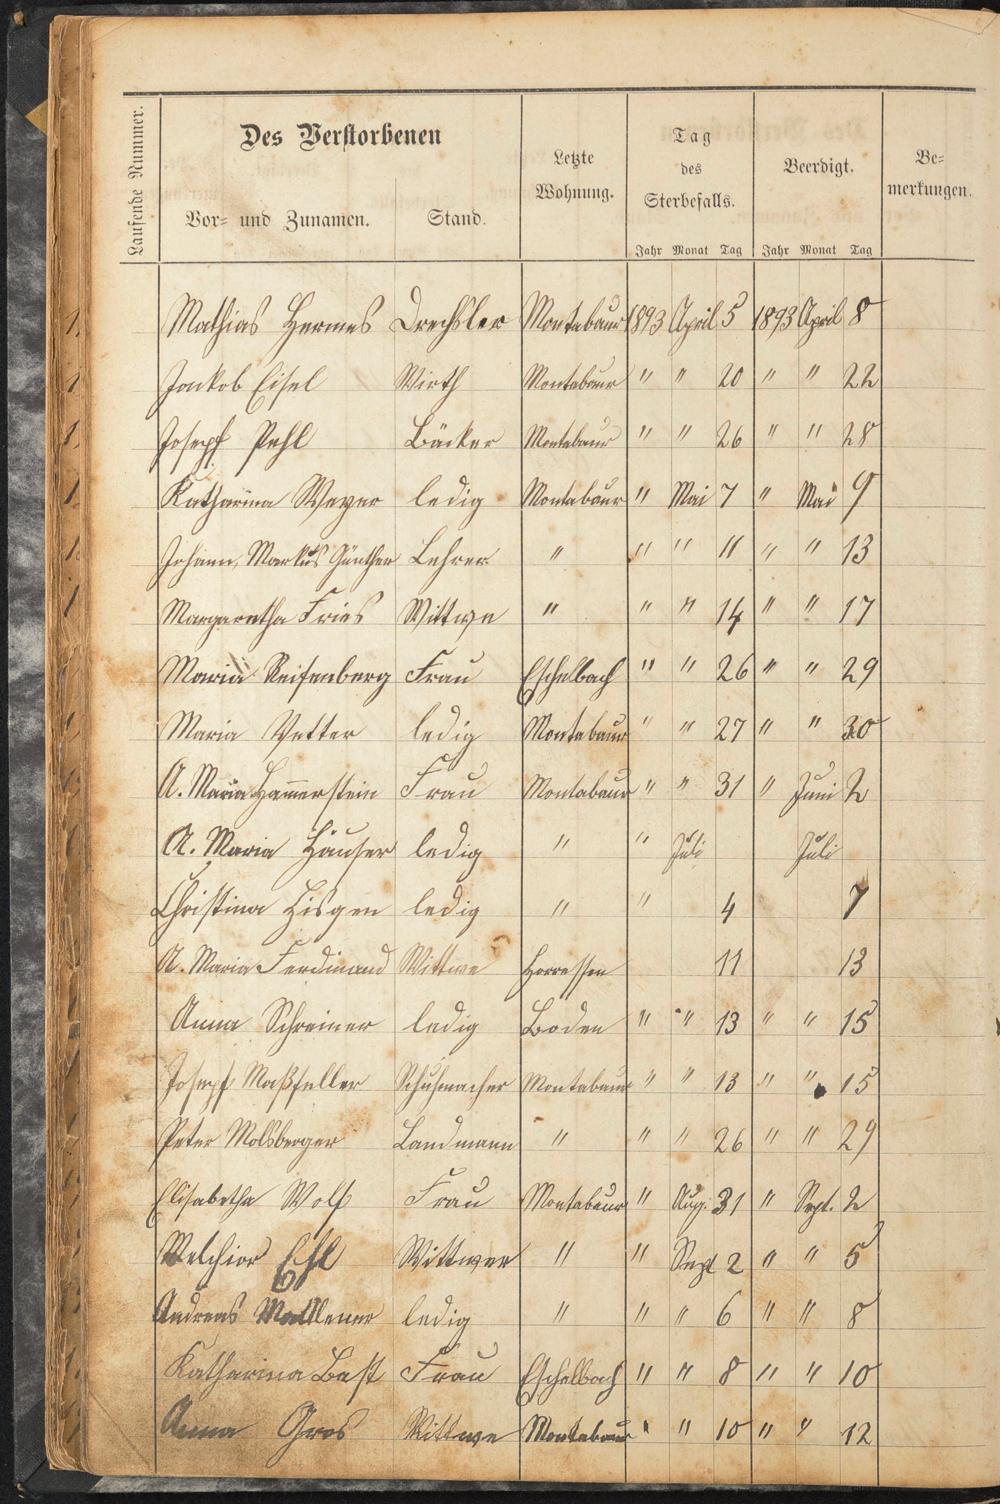 Laufende Nummer.
Des Verstorbenen
Vor- und Zunamen.
Stand.
Letzte
Wohnung.
Tag
des
Sterbefalls.
Jahr Monat Tag
Beerdigt.
Jahr Monat Tag
Be-
merkungen.
Mathias Hermes Drechsler Montabaur 1893 April 5 1893 April 8
Jackob Eisel Wirth Montabaur " " 20 " " 22
Josepf Pehl Bäcker Montabaur " " 26 " " 28
Katharina Weyer ledig Montabaur " Mai 7 " Mai 9
Johann, Markus Günther Lehrer " " " 11 " " 13
Margaretha Fries Wittwe " " " 14 " " 17
Maria Reifenberg Frau Eschelbach " " 26 " " 29
Maria Vetter ledig Montabaur " " 27 " " 30
A. Maria Hammerstein Frau Montabaur " " 31 " Juni 2
A. Maria Häuser ledig " " Juli Juli
Christina Hisgen ledig " " 4 7
A. Maria Ferdinand Wittwe Horressen 11 13
Anna Schreiner ledig Boden " " 13 " " 15
Josepf Maßfeller Schuhmacher Montabaur " " 13 " " 15
Peter Molsberger Landmann " " " 26 " " 29
Elisabetha Wolf Frau Montabaur " Aug. 31 " Sept. 2
Melchior Wittwer " " Sept 2 " " 5
Andreas ledig " " " 6 " " 8
Katharina Best Frau Eschelbach " " 8 " " 10
Anna Gros Wittwe Montabaur " " 10 " " 12